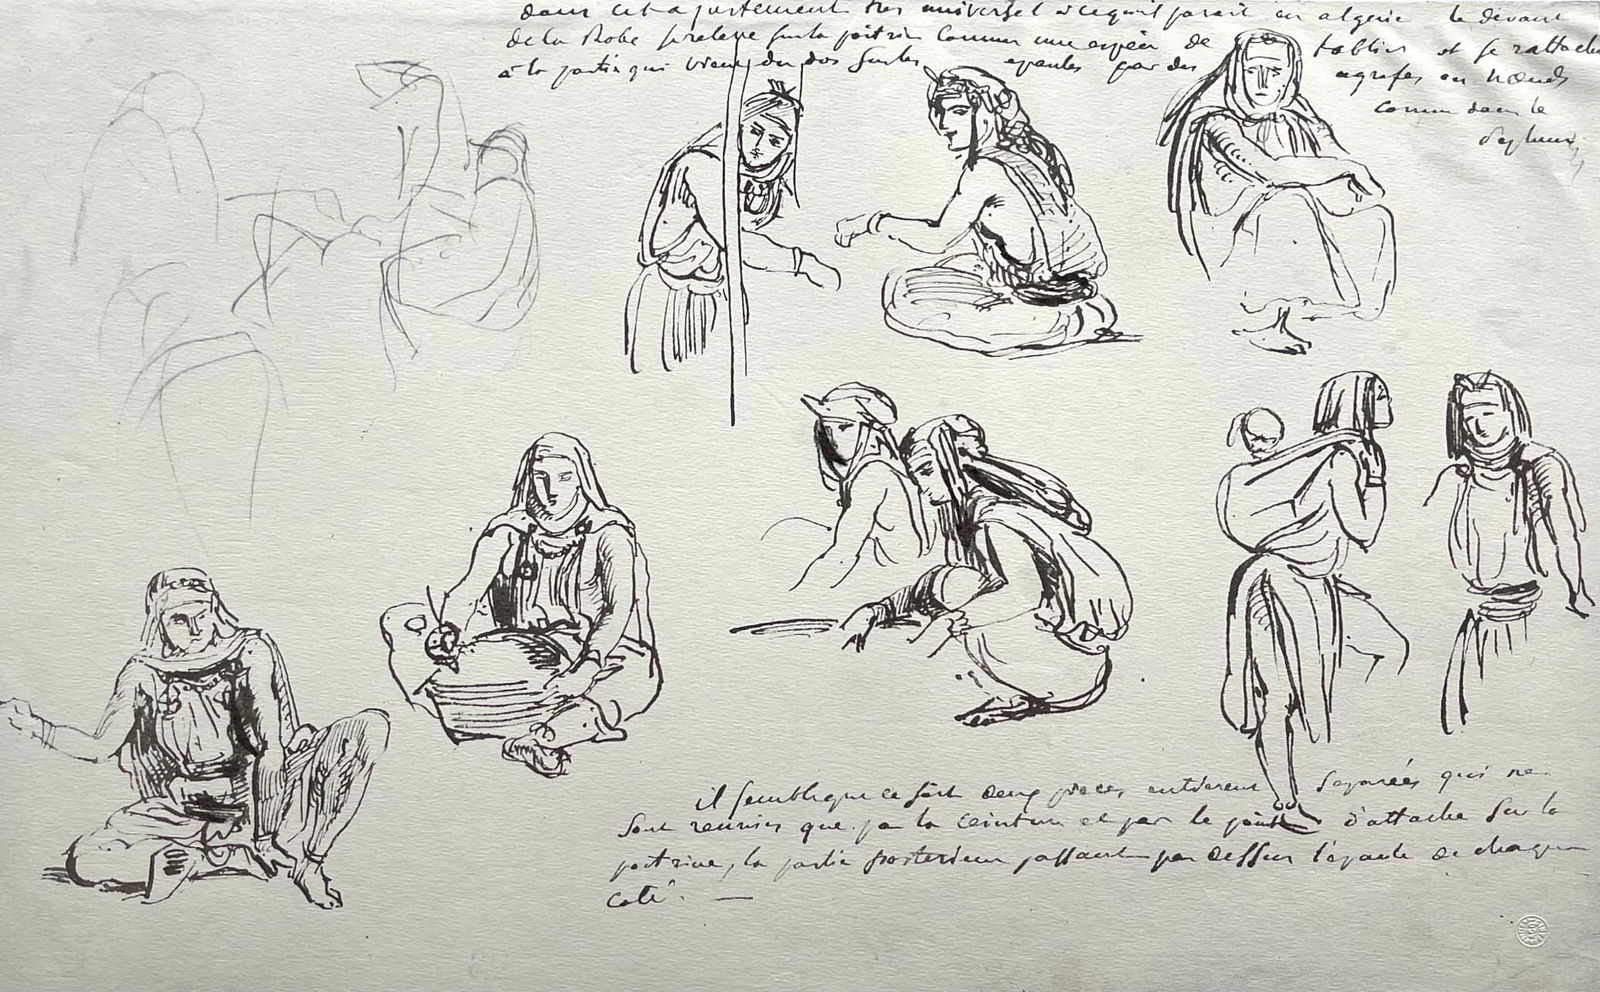 dans cet ajustement très universel à ce qu'il parait en algerie le devant
de la Robe se releve sur la poitrine comme une espèce de tablier et se rattache
à la partie qui vient du dos sur les epaules par des agrafes ou nœuds
comme dans le
il semble que ce soit deux pieces entierement séparées qui ne
sont reunies que par la ceinture et par le point d'attache sur la
poitrine, la partie posterieure passant par dessus l'epaule de chaque
coté. —